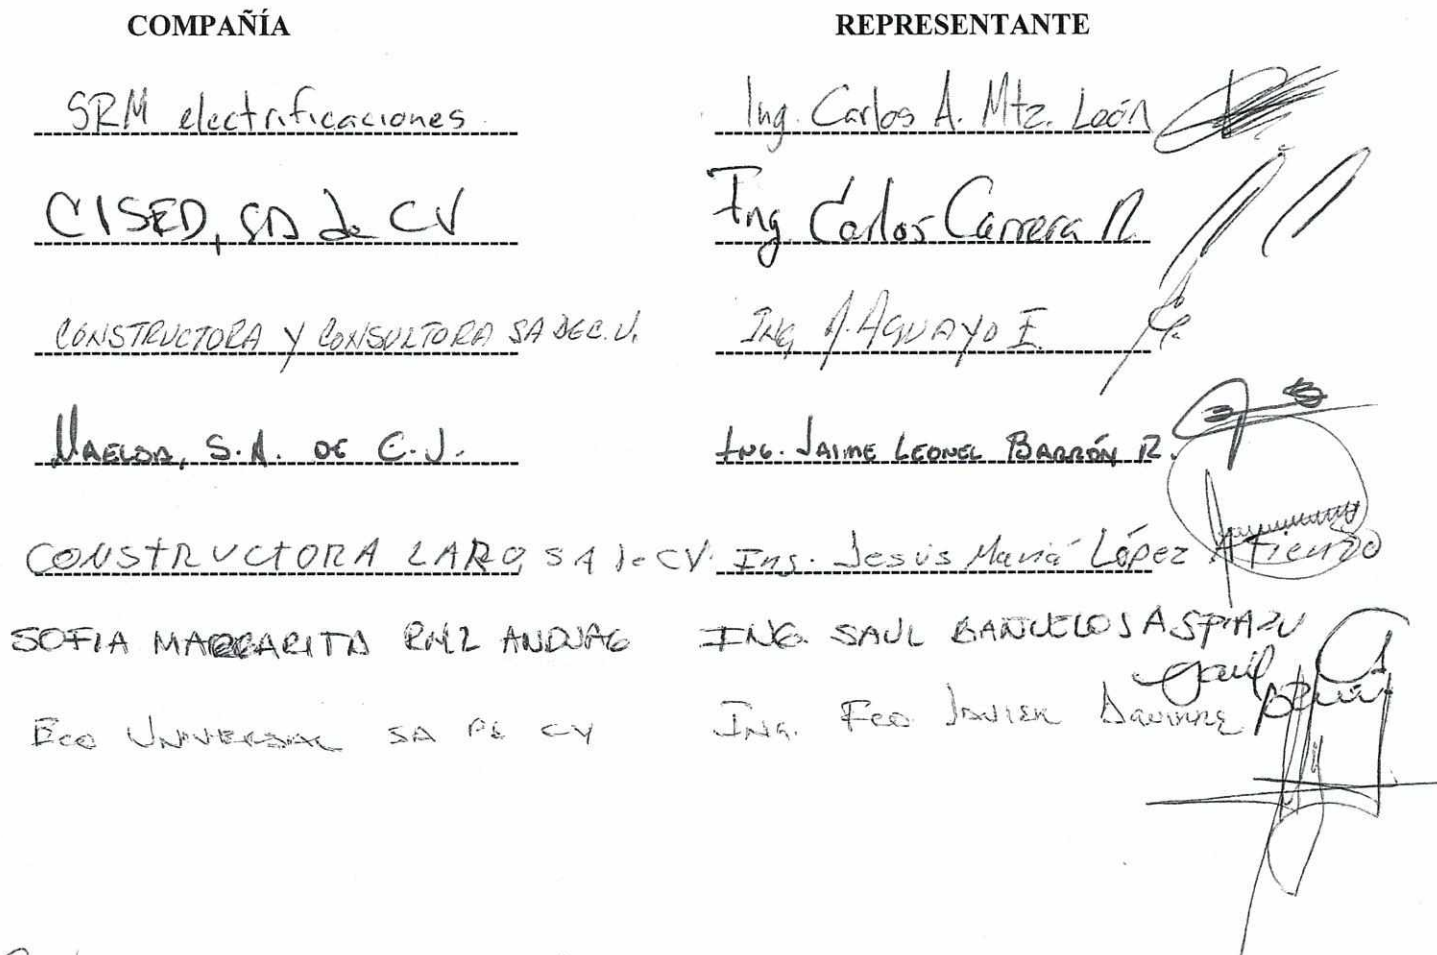 COMPAÑÍA REPRESENTANTE
SRM electrificaciones Ing. Carlos A. Mtz. León
CISED, SA de CV Ing. Carlos Carrera R.
CONSTRUCTORA Y CONSULTORA SA DE C.V. ING. A. AGUAYO E.
MAELDA, S.A. DE C.V. ING. JAIME LEONEL BARRÓN R.
CONSTRUCTORA LARO, SA de CV. Ing. Jesús María López Atienzo
SOFIA MARGARITA ING. SAUL BAÑUELOS ASPIAZU
Saul
ECO UNIVERSAL SA DE CV ING. FCO JAVIER AGUIRRE